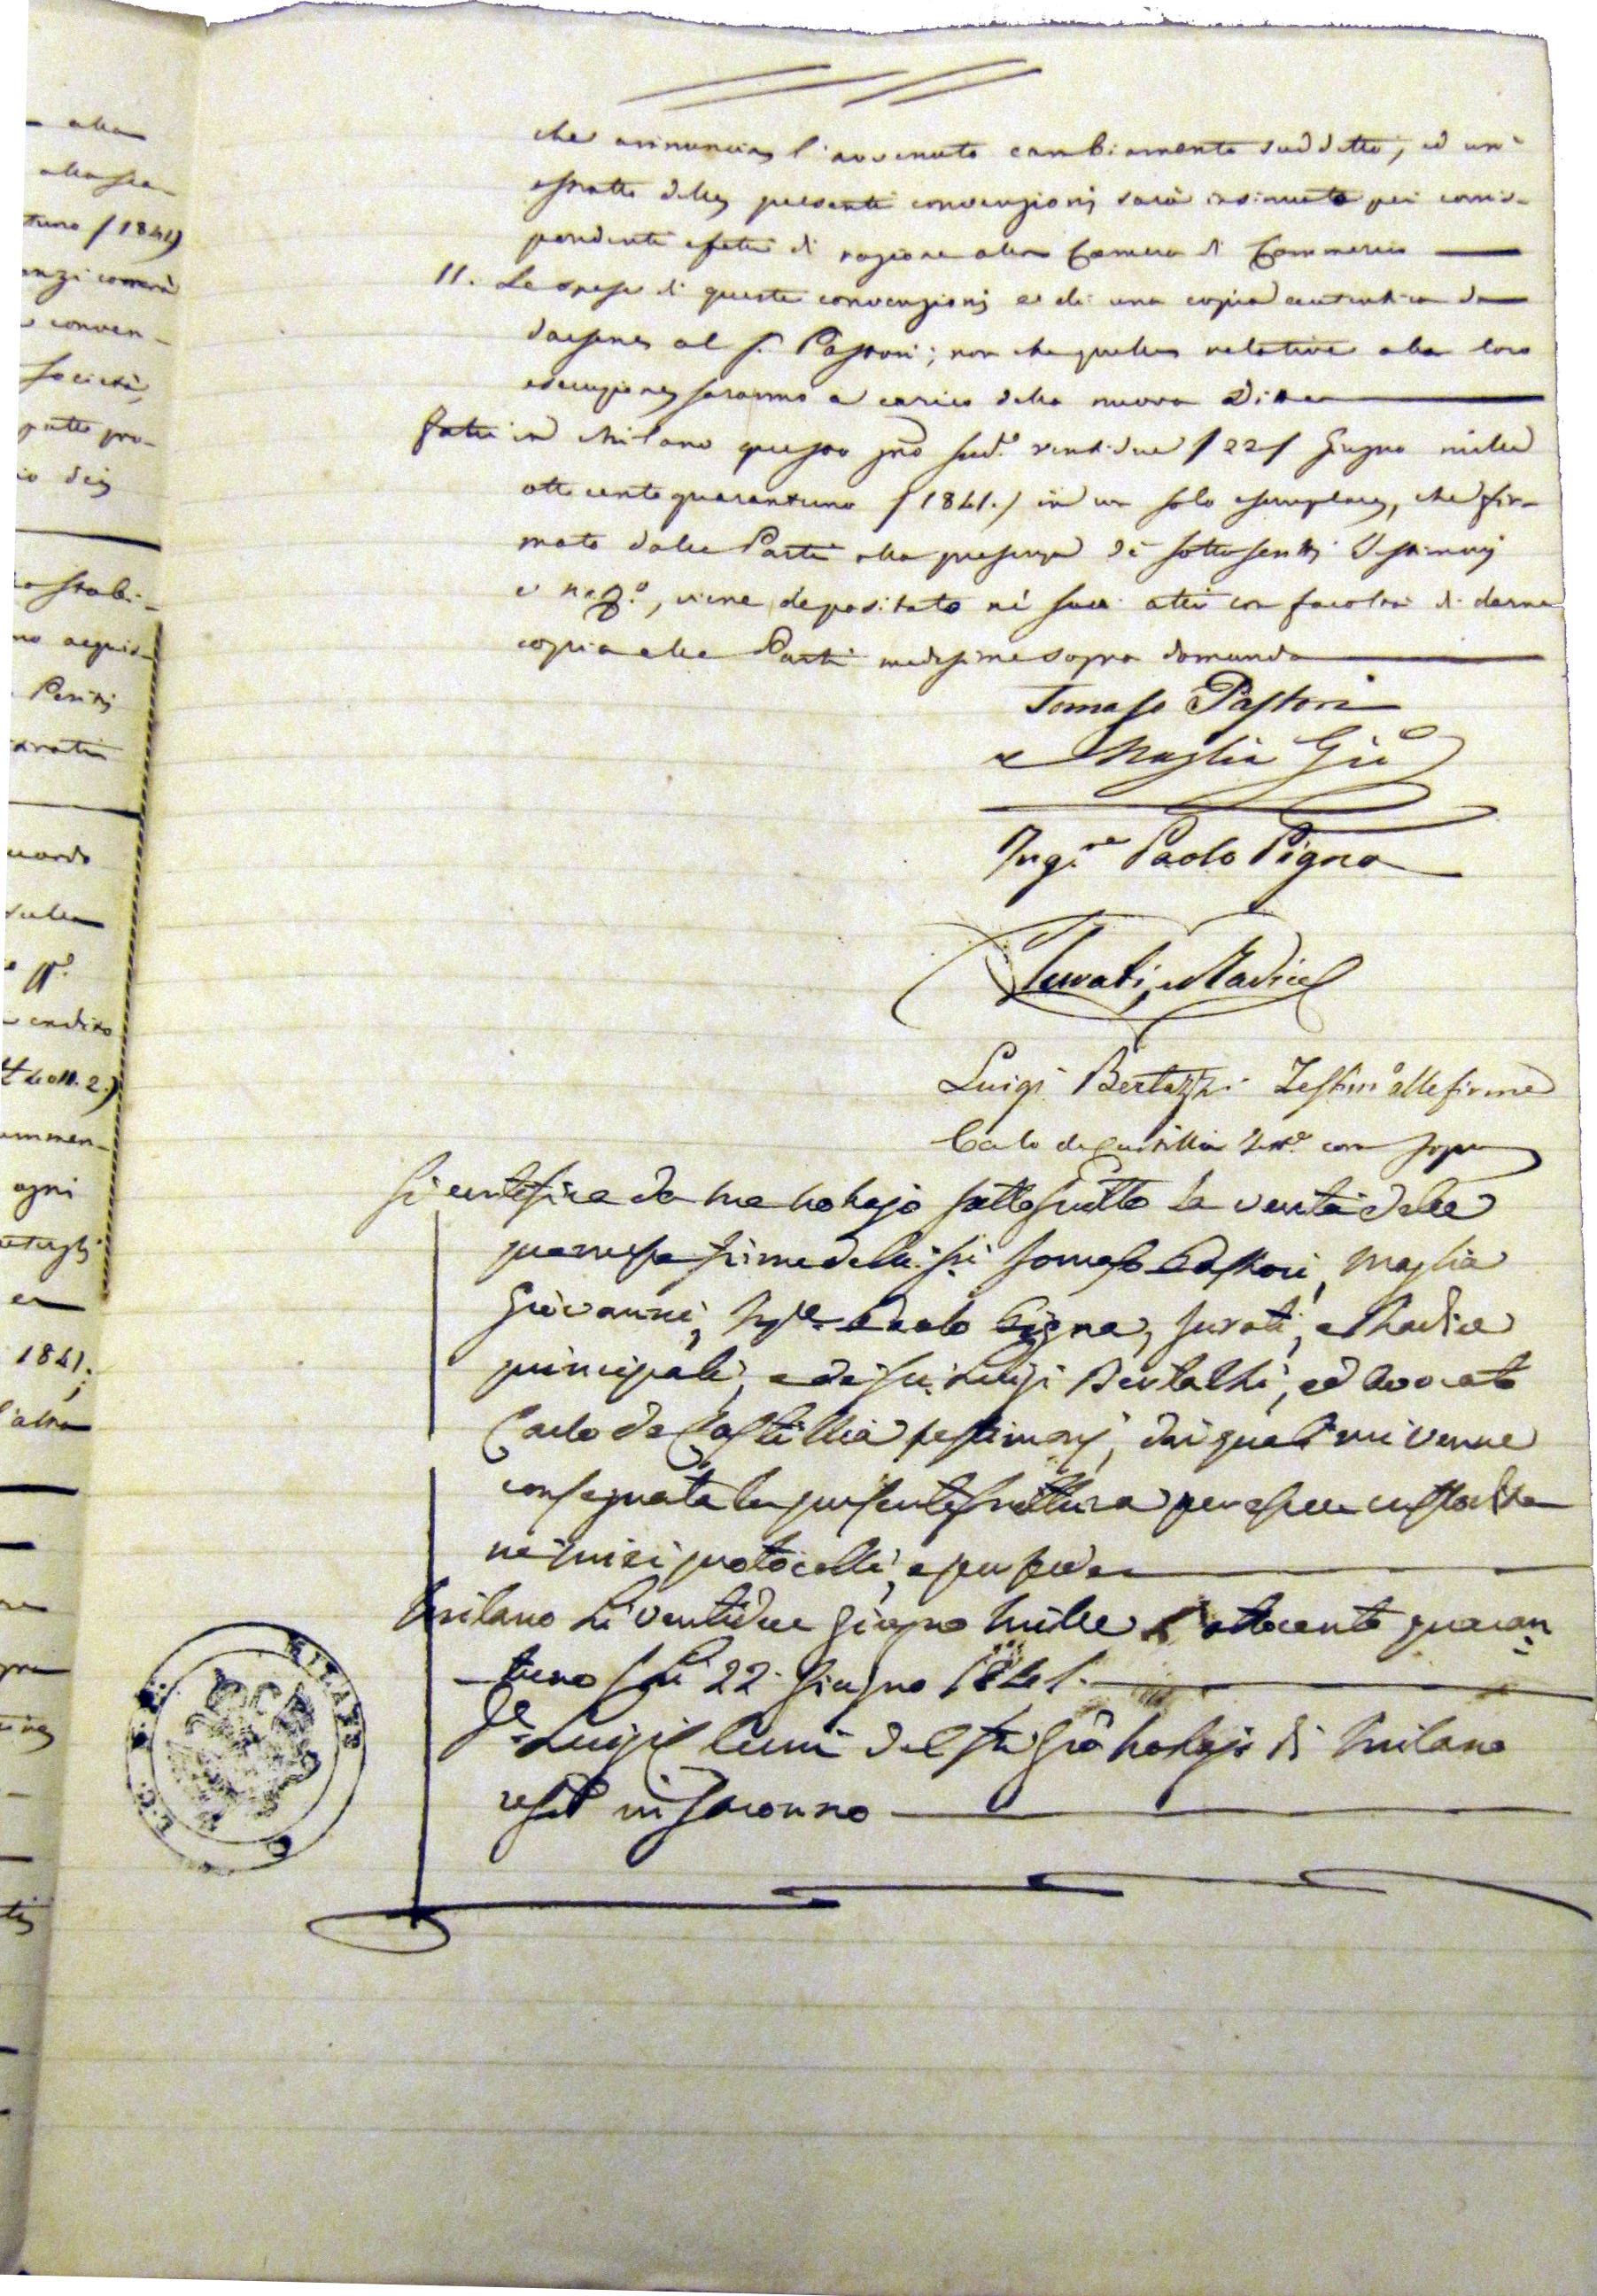 che annuncia l'avvenuto cambiamento suddetto, ed un'
estratto della presente convenzione sarà insinuato pei corris-
pondenti effetti di ragione alla Camera di Commercio
11. Le spese di questa convenzione e di una copia autentica da
darsene al S.r Pastori; non che quelle relative alla loro
esecuzione saranno a carico della nuova Ditta
Fatto in Milano questo gno sud.o ventidue /22/ Giugno mille
ottocentoquarantuno /1841./ in un solo esemplare, che fir-
mato dalle Parti alla presenza dè sottoscritti Testimonj
e viene depositato nè suoi atti con facoltà di darne
copia alle Parti medesime sopra domanda
Tomaso Pastori
Maglia Gio
Ing.re Paolo Pigna
Turati, e Radice
Luigi Bertazzi Testim.o alle firme
Carlo de Castillia Test.o come sopra
Si certifica da me Notajo sottoscritto la verità delle
premesse firme delli Sri Tomaso Pastori, Maglia
Giovanni, Ing.re Paolo Pigna, Turati, e Radice
principali, e dei Sri Luigi Bertazzi, ed Avvocato
Carlo De Castillia testimonj, dai quali mi venne
consegnata la presente scrittura per essere custodita
ne' miei protocolli, e per fede
Milano Li ventidue Giugno Mille ottocento quaran
tuno Li 22 Giugno 1841.
Luigi del fu Gio Notajo di Milano
resid.e in Saronno
MILANO
alla
tuno /1841/
anzi
conven-
Società,
patti pro-
io dei
stabi-
no acquis-
Periti
sulla
ogni
1841.
l'altra